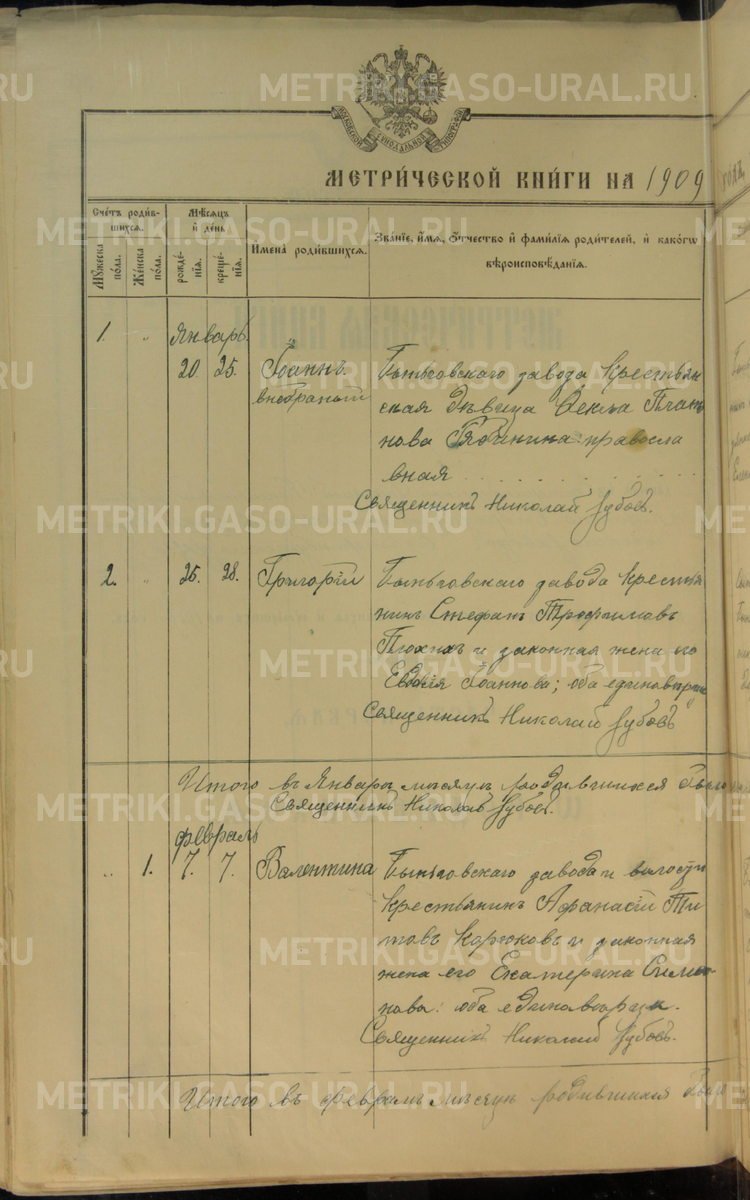 МОСКОВСКОЙ СИНОДАЛЬНОЙ ТИПОГРАФІИ
МЕТРИ́ЧЕСКОЙ КНИ́ГИ НА 1909
Сче́тъ роди́вшихся.
Мѣ́сяцъ и҆ де́нь
Мꙋ́жеска по́ла.
Же́нска по́ла.
рожде́нїѧ.
креще́нїѧ.
И҆мена̀ роди́вшихсѧ.
Зва́нїе, и҆́мѧ, ѻ҆́тчество и҆ фами́лїѧ роди́телей, и҆ како́гѡ
вѣроисповѣ́данїѧ.
Январь
1 " 20. 25. Іоаннъ Быньговскаго завода крестьян
внѣбрачный ская дѣвица Ѳекла
нова православ
вная
Священникъ Николай Зубовъ.
2. " 25. 28. Григорій Быньговскаго завода крестья
нинъ Стефанъ Трофимовъ
и законная жена его
Іоаннова; оба единовѣрцы
Священникъ Николай Зубовъ
Итого въ Январѣ мѣсяцѣ родившихся было
Священникъ Николай Зубовъ.
февраль
" 1. 7. 7. Валентина Быньговскаго завода и волости
крестьянинъ Афанасій Ти
товъ Карюковъ и законная
жена его Екатерина Симео
нова: оба единовѣрцы.
Священникъ Николай Зубовъ.
Итого въ февралѣ мѣсяцѣ родившихся было
METRIKI.GASO-URAL.RU